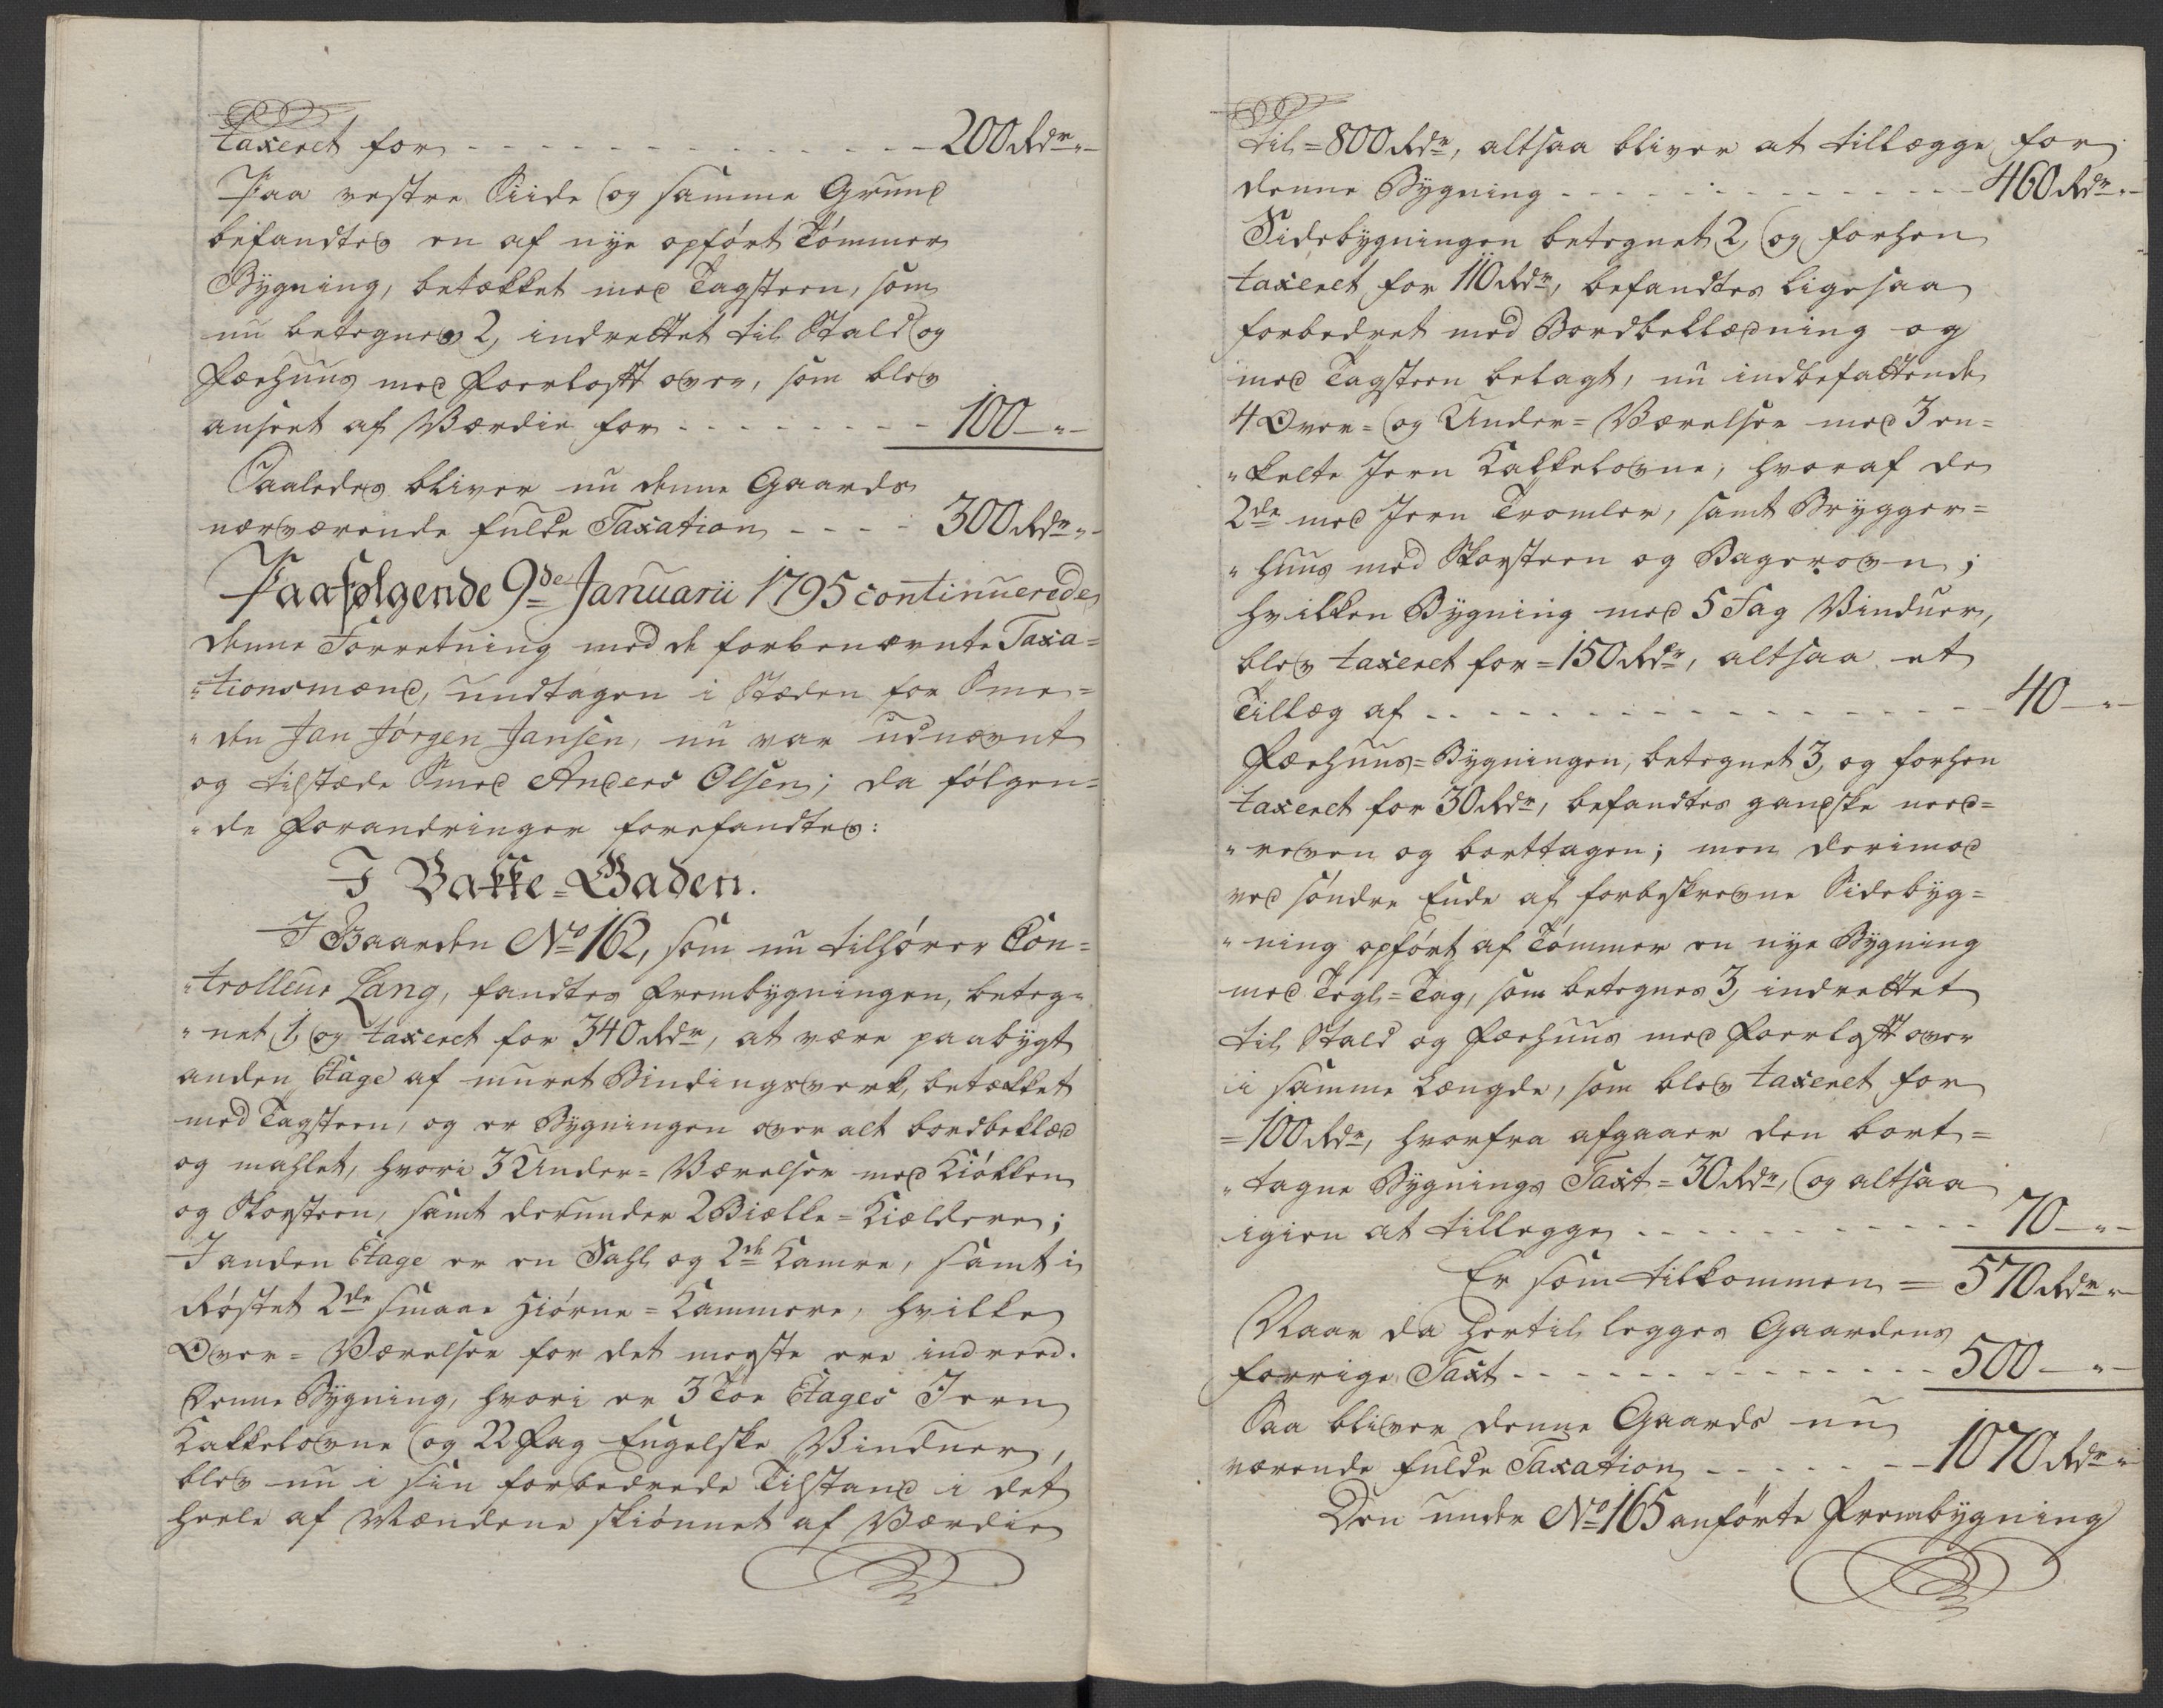 taxeret for - - - - - - - - - - - - - - 200 Rdr "-
Paa vestre Siide og samme Grund
befandtes en af nye opført Tømmer
Bygning, betækket med Tagsteen, som
nu betegnes 2, indrettet til Stald og
Fæehuus med Foerlofft over, som blev
anseet af Værdie for - - - - - - - - 100 - " -
Saaledes bliver nu denne Gaards
nærværende fulde Taxation - - - - 300 Rdr "-
Paafølgende 9de Januarii 1795 continuerede
denne Forretning med de forbenævnte Taxa=
"tionsmænd, undtagen i Stæden for Sme=
"den Jan Jørgen Jansen, nu var udnævnt
og tilstæde Smed Anders Olsen; da følgen=
"de Forandringer forefandtes:
I Bakke=Gaden.
I Gaarden No 162, som nu tilhører Con=
"trolleur Lang, fandtes Frembygningen, beteg=
"net 1, og taxeret for 340 Rdr, at være paabygt
anden Etage af muret Bindingsverk, betækket
med Tagsteen, og er Bygningen over alt bordbeklæd
og mahlet, hvori 3 Under=Værelser med Kiøkken
og Skorsteen, samt derunder 2 Biælke=Kieldere;
I anden Etage er en Sahl og 2de Kamre, samt i
Røstet 2de smaae Hiørne=Kammere, hvilke
Over=Værelser for det meeste ere indreed.
Denne Bygning, hvori er 3 Toe Etages Jern
Kakkelovne og 22 Fag Engelske Vinduer,
blev nu i sin forbedrede Tilstand i det
heele af Mændene skiønnet af Værdie
til = 800 Rdr, altsaa bliver at tillægge for
denne Bygning - - - - - - - - - - - - - 460 Rdr "-
Sidebygningen betegnet 2, og forhen
taxeret for 110 Rdr, befandtes ligesaa
forbedret med Bordbeklædning og
med Tagsteen belagt, nu indbefattende
4 Over= og Under=Værelser med 3 en=
"kelte Jern Kakkelovne, hvoraf de
2de med Jern Tromler, samt Brygger=
"huus med Skorsteen og Bagerovn;
hvilken Bygning med 5 Fag Vinduer,
blev taxeret for = 150 Rdr, altsaa et
Tillæg af - - - - - - - - - - - - - - - - - 40 - " -
Fæehuus=Bygningen, betegnet 3, og forhen
taxeret for 30 Rdr, befandtes gandske need=
"reven og borttagen; men derimod
ved søndre Ende af forbeskrevne Sidebyg=
"ning opført af Tømmer en nye Bygning
med Tegl=Tag, som betegnes 3, indrettet
til Stald og Fæehuus med Foerlofft over
i samme Længde, som blev taxeret for
= 100 Rdr, hvorfra afgaaer den bort=
"tagne Bygnings Taxt = 30 Rdr, og altsaa
igien at tillegge - - - - - - - - - - - 70 - " -
Er som tilkommen = 570 Rdr "-
Naar da hertil legges Gaardens
forrige Taxt - - - - - - - - - - - - - 500 - " -
Saa bliver denne Gaards nu
værende fulde Taxation - - - - - - 1070 Rdr "-
Den under No 165 anførte Frembygning